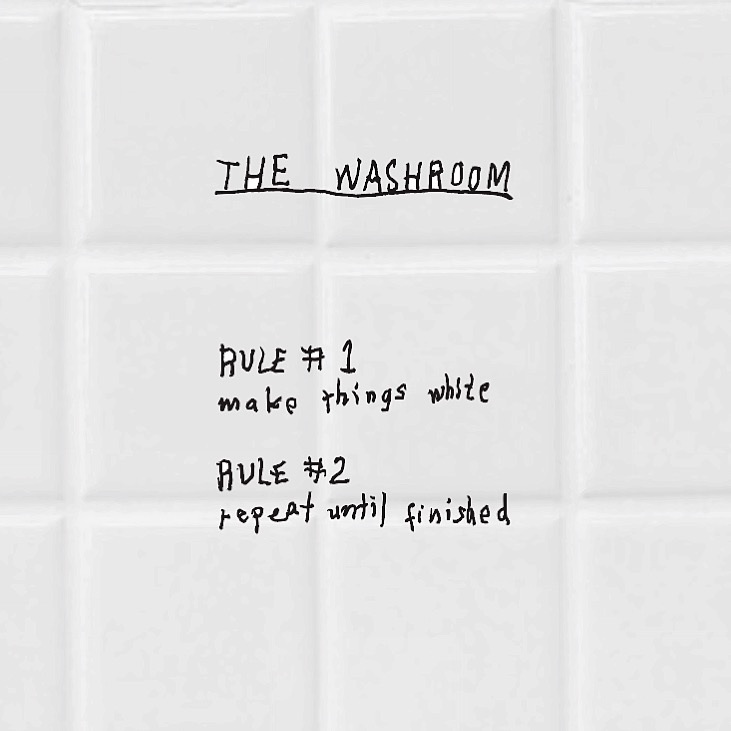 THE WASHROOM
RULE # 1
make things white
RULE #2
repeat until finished